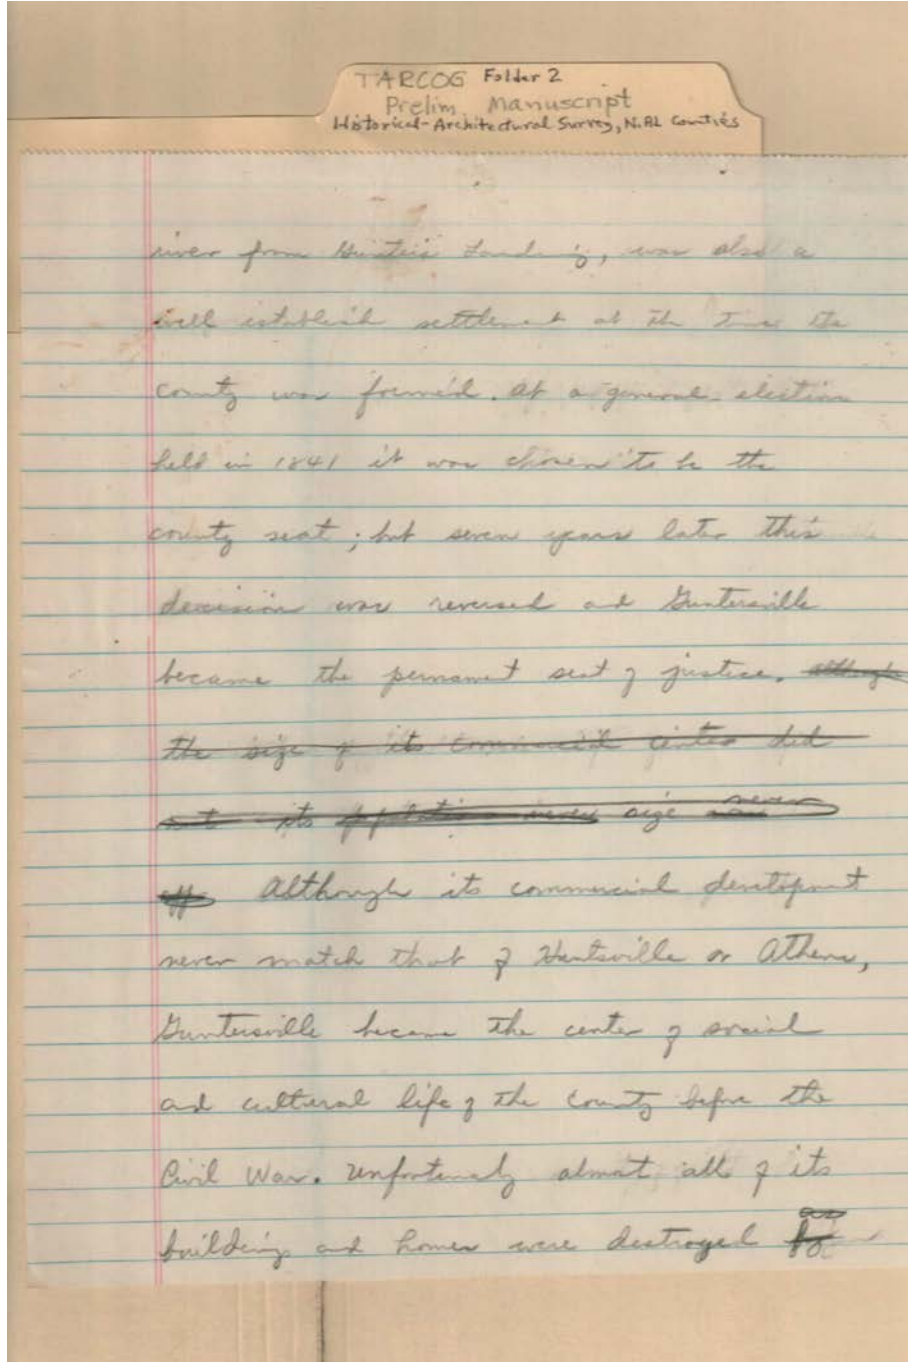 TARCOG Folder 2
Prelim. Manuscript
Historical-Architectural Survey, N. AL Counties
river from Gunter's Landing, was also a
well establish settlement at the time the
county was formed. At a general election
held in 1841 it was chosen to be the
county seat; but seven years later this
decision was reversed and Guntersville
became the permanent seat of justice. although
the size of its commercial center did
not its population never size never
Although its commercial development
never match that of Huntsville or Athens,
Guntersville became the center of social
and cultural life of the county before the
Civil War. Unfortunately almost all of its
building and homes were destroyed as